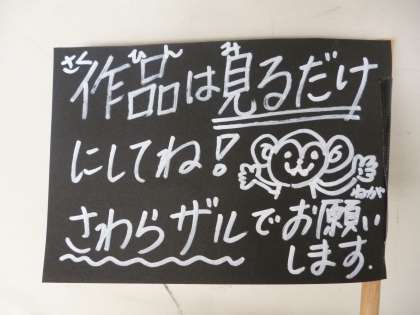 さくひん み
作品は見るだけ
にしてね!
ねが
さわらザルでお願い
します.